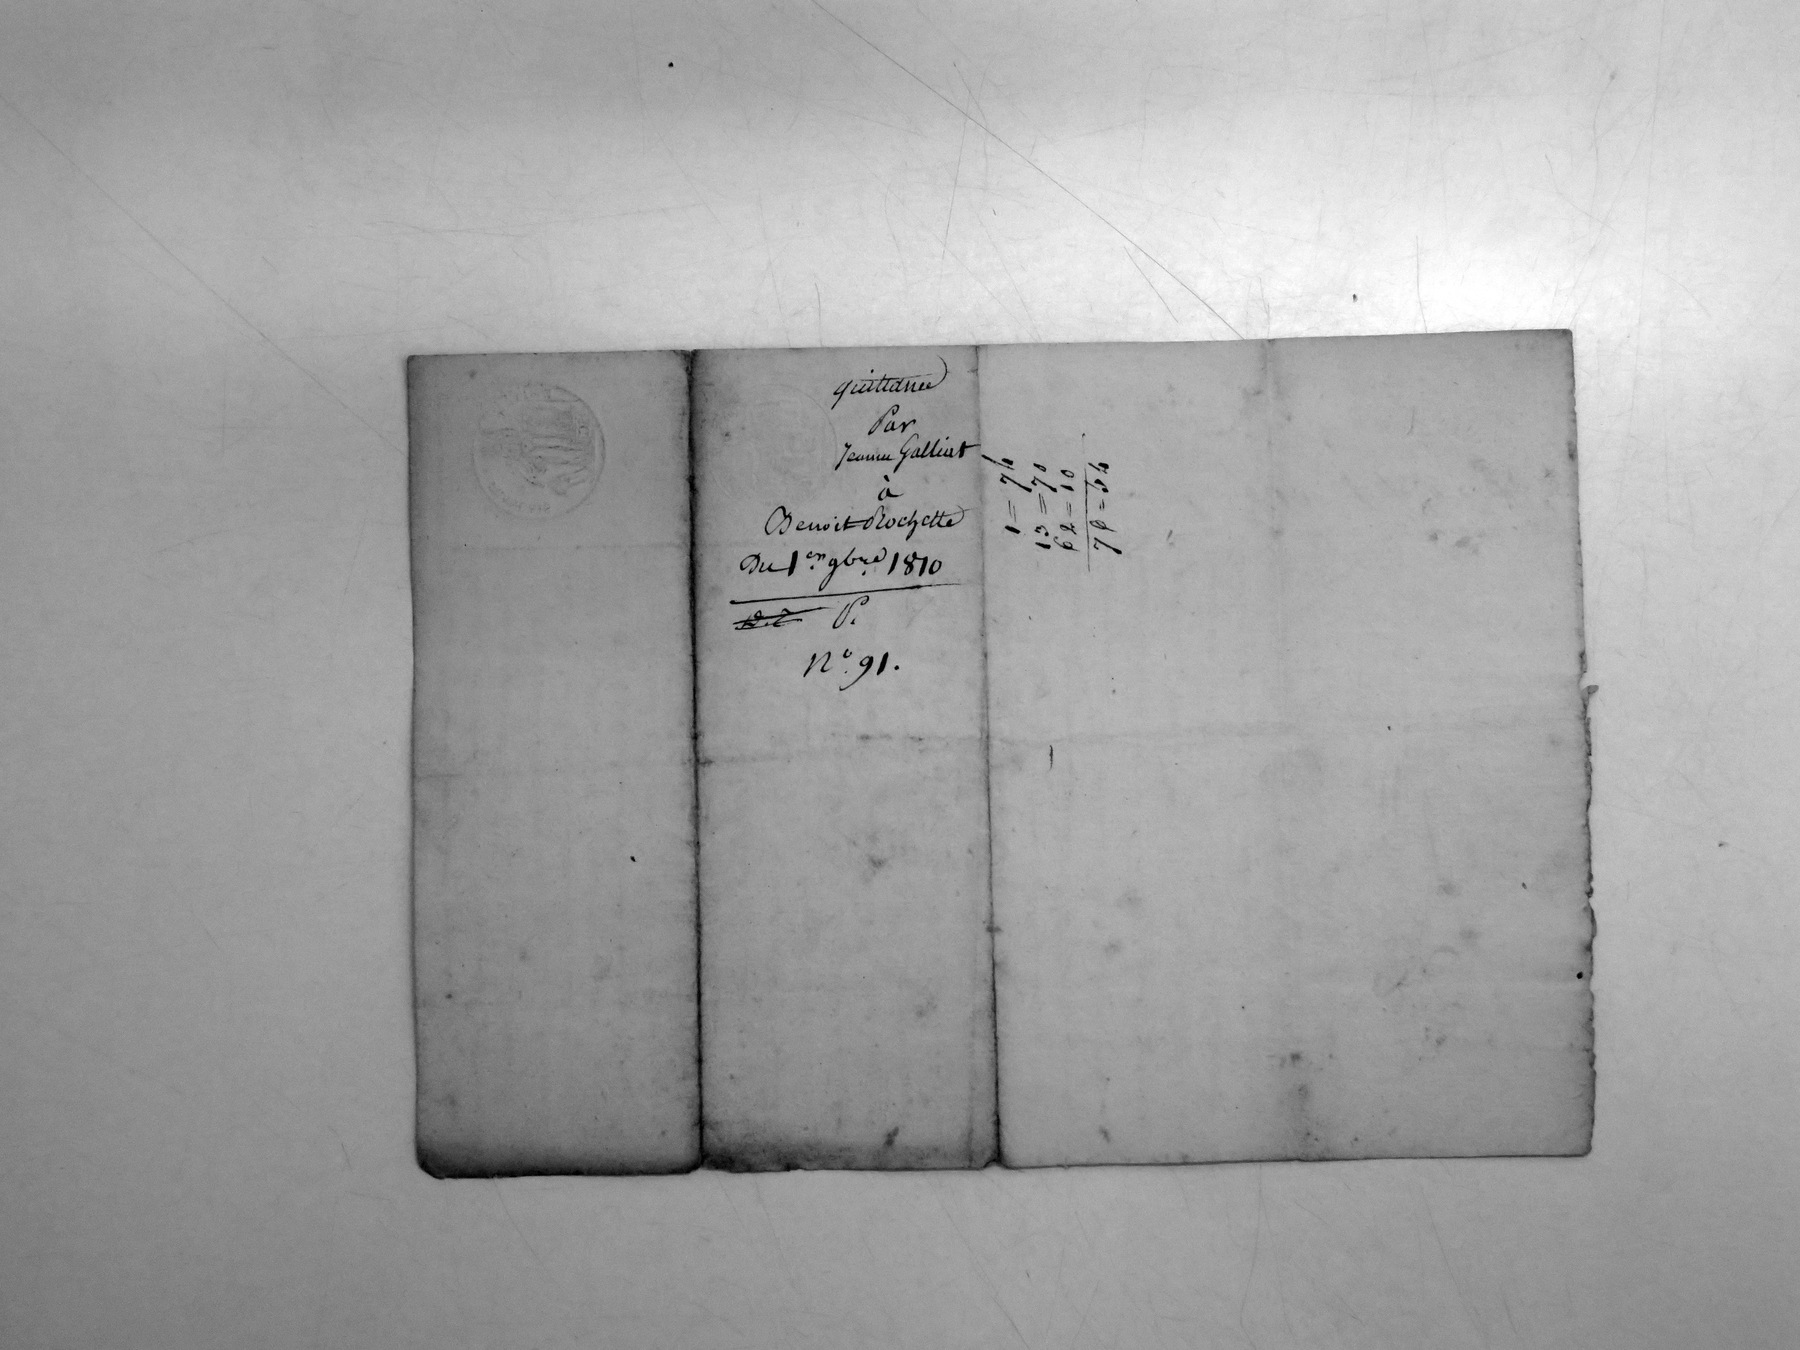 quittance
Par
Jeanne Galliat
à
Benoit Rochette
Du 1er 9bre 1810
P.
N° 91.
1 = 74
13 = 70
62 = 10